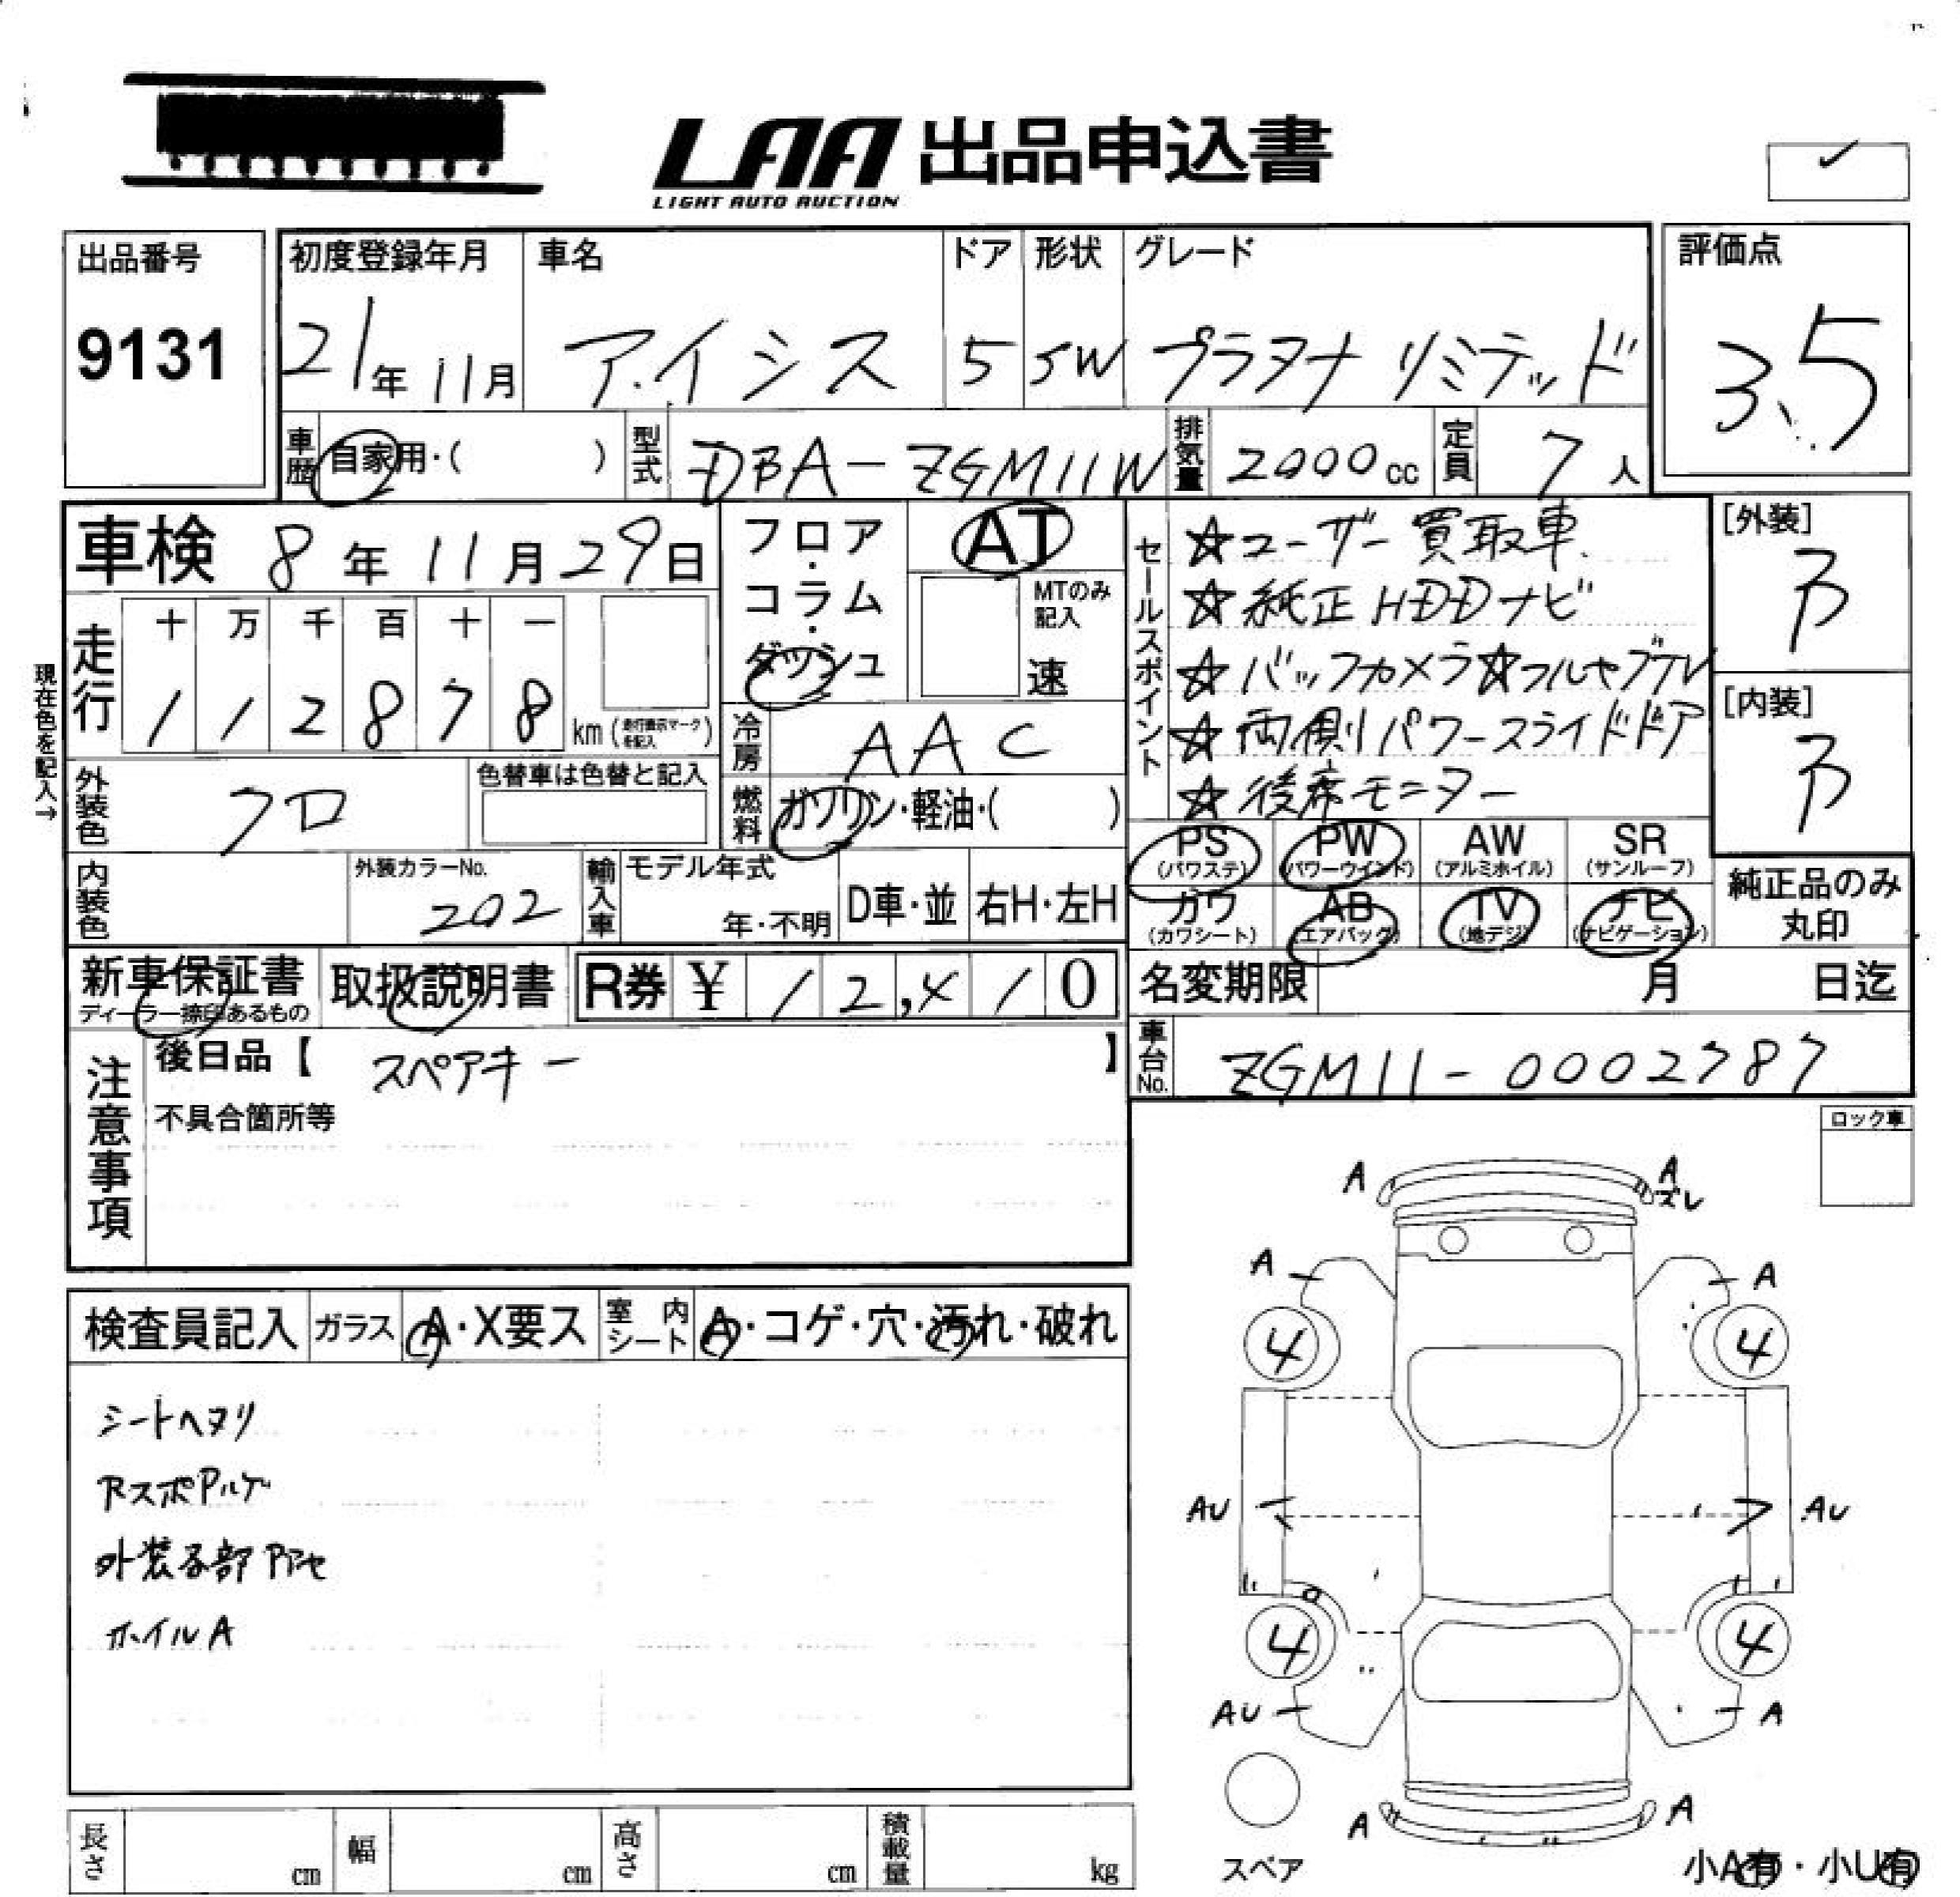 LAA 出品申込書
LIGHT AUTO AUCTION
出品番号
9131
初度登録年月
21年11月
車名
アイシス
ドア
5
形状
5W
グレード
プラタナ リミテッド
評価点
3.5
車歴
自家用・( )
型式
DBA-ZGM11W
排気量
2000cc
定員
7人
車検 8年11月29日
フロア・コラム・ダッシュ
AT
MTのみ記入
速
セールスポイント
☆ユーザー買取車
☆純正HDDナビ
☆バックカメラ☆フルセグTV
☆両側パワースライドドア
☆後席モニター
[外装]
B
[内装]
B
現在色を記入→
走行
十 万 千 百 十 一
1 1 2 8 7 8
km(走行表示マークを記入)
冷房
AAC
外装色
クロ
色替車は色替と記入
燃料
ガソリン・軽油・( )
PS
(パワステ)
PW
(パワーウインド)
AW
(アルミホイル)
SR
(サンルーフ)
カワ
(カワシート)
AB
(エアバッグ)
TV
(地デジ)
ナビ
(ナビゲーション)
純正品のみ
丸印
内装色
外装カラーNo.
202
輸入車
モデル年式
年・不明
D車・並
右H・左H
新車保証書
ディーラー捺印あるもの
取扱説明書
R券 ¥ 12,410
名変期限 月 日迄
車台No.
ZGM11-0002787
注意事項
後日品【 スペアキー 】
不具合箇所等
ロック車
検査員記入
ガラス
A・X要ス
室内シート
A・コゲ・穴・汚れ・破れ
シートヘタリ
外装各部
ホイルA
A
A
ズレ
A
A
4
4
AU
AU
4
4
AU
A
A
A
スペア
小A有・小U有
長さ
cm
幅
cm
高さ
cm
積載量
kg